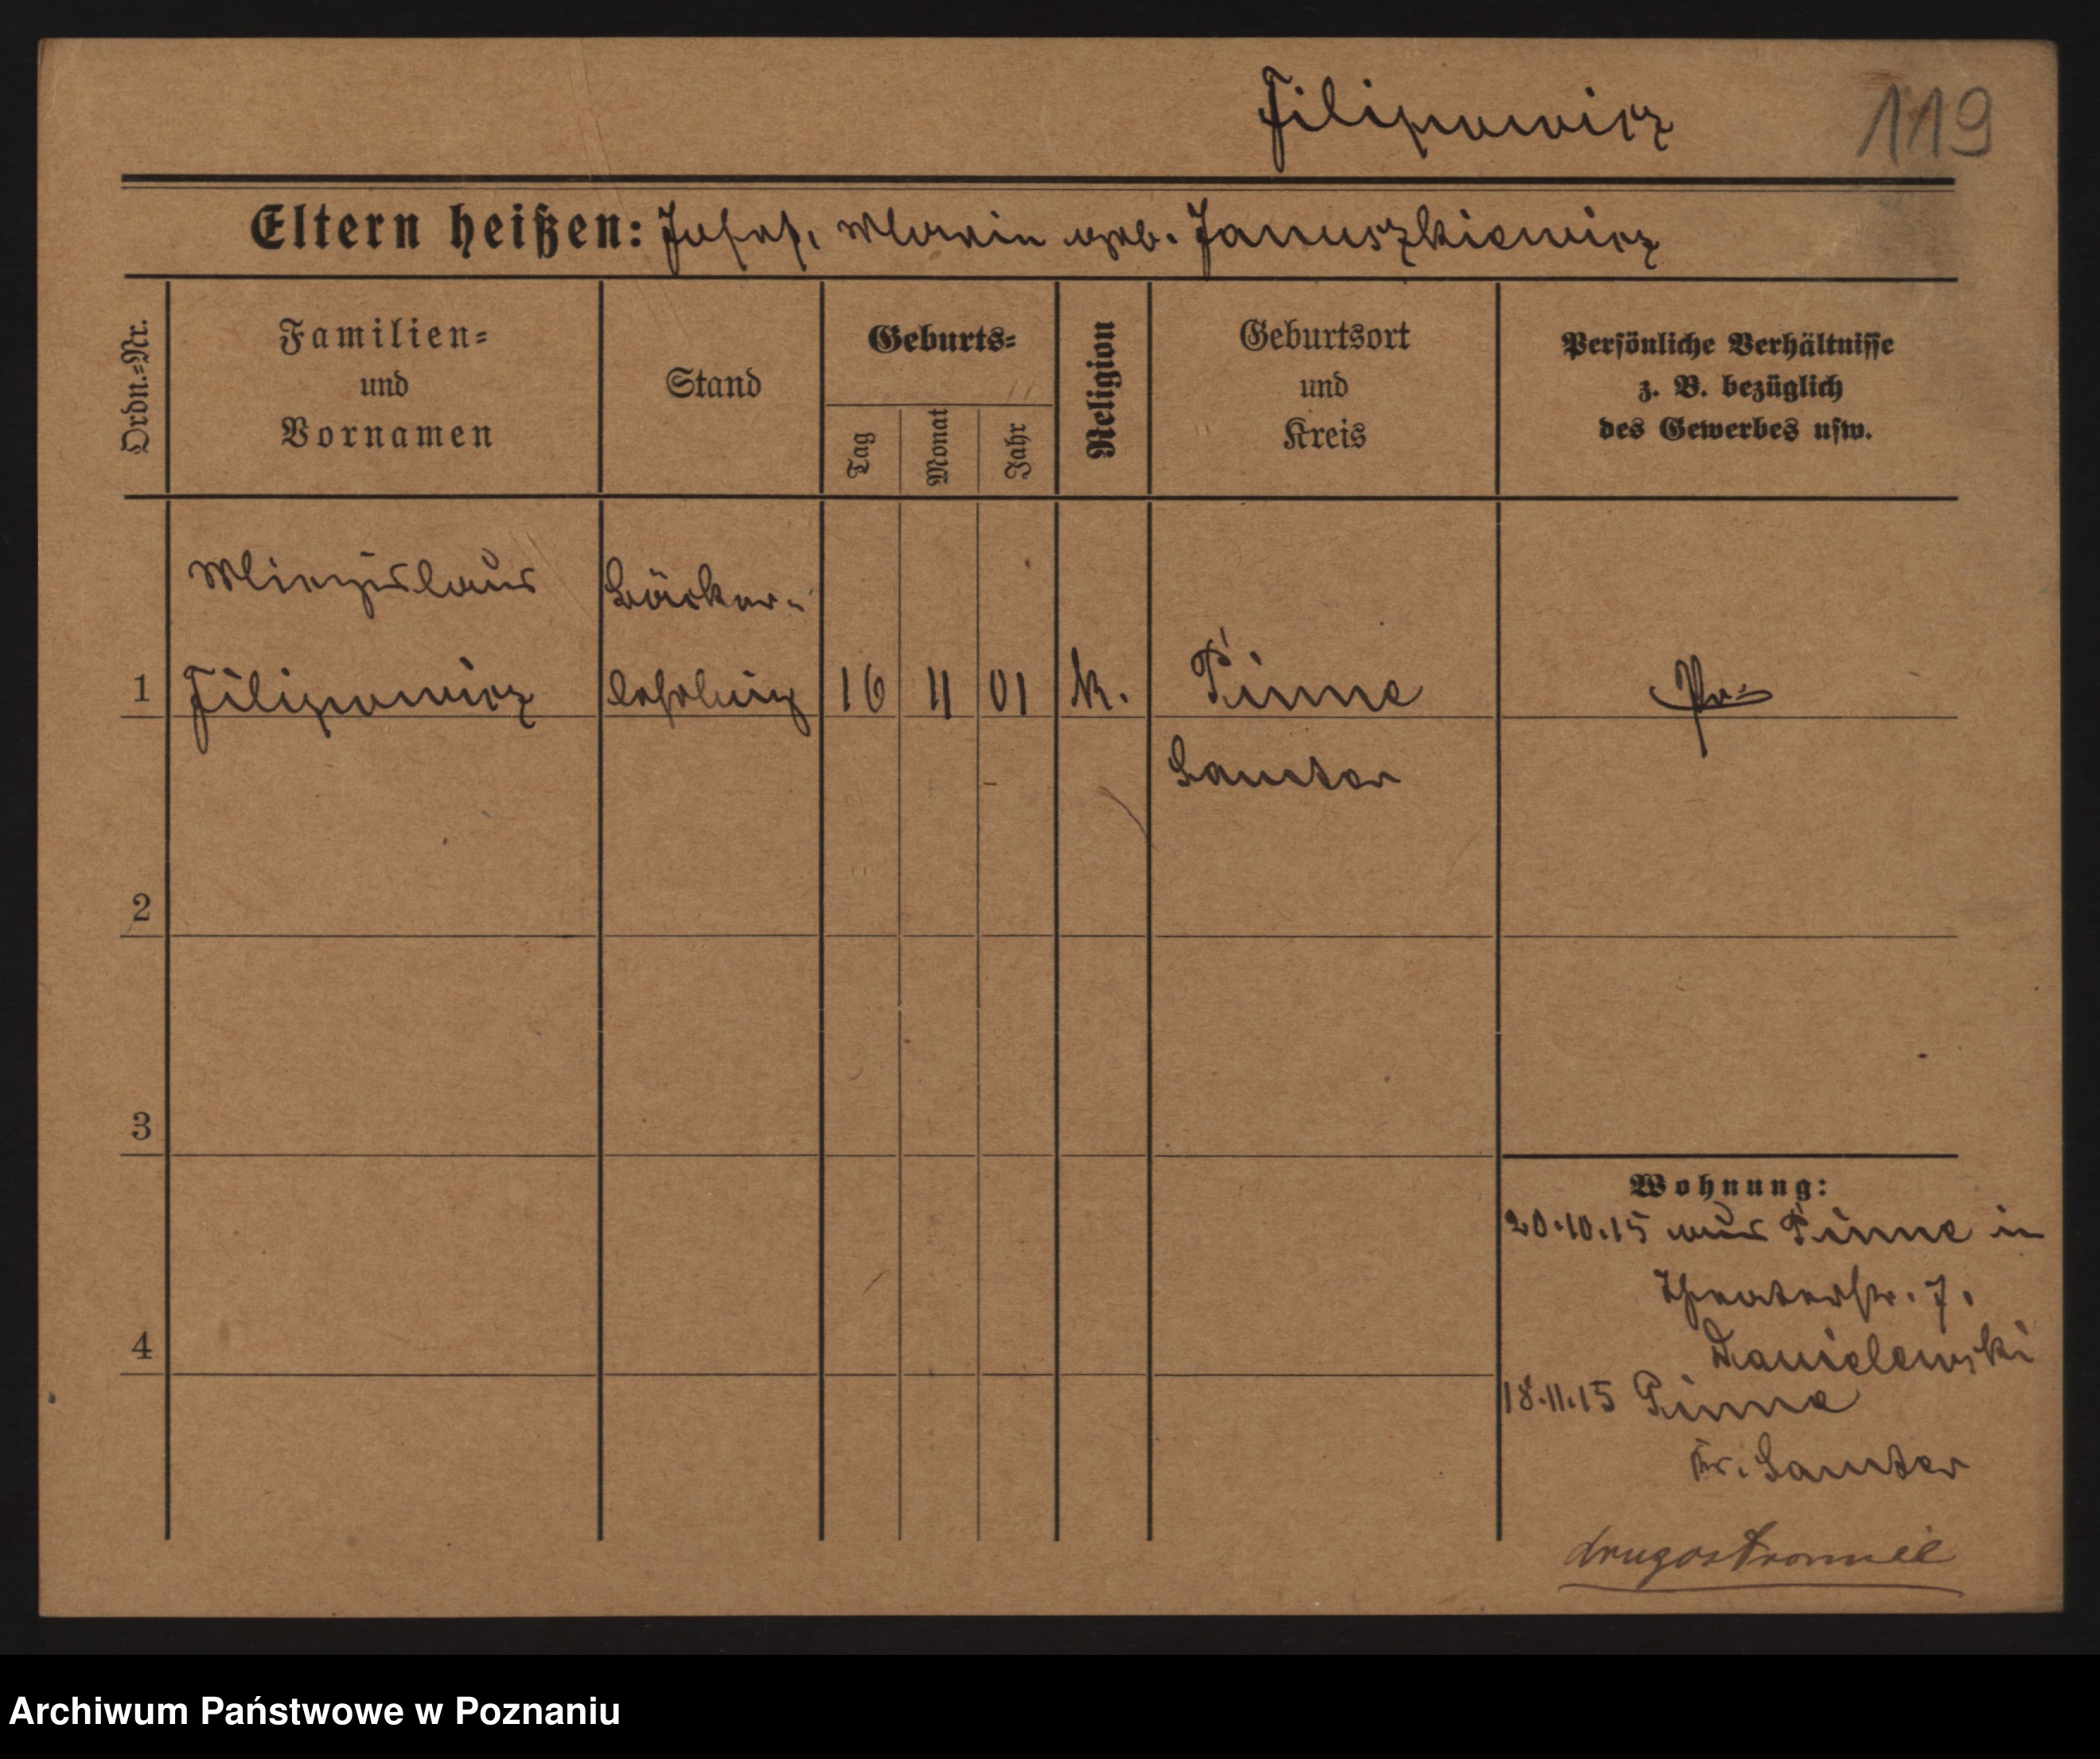 Filipowicz
119
Eltern heißen: Josef, Marie geb. Januszkiewicz
Ordn.-Nr.
Familien-
und
Vornamen
Stand
Geburts-
Tag
Monat
Jahr
Religion
Geburtsort
und
Kreis
Persönliche Verhältnisse
z. B. bezüglich
des Gewerbes usw.
Miezislaus Bäcker-
1 Filipowicz lehrling 16 11 01 k. Pinne Pr.
Samter
2
3
4
Wohnung:
20.10.15 aus Pinne in
Theaterstr. 7.
Danielewski
18.11.15 Pinne
Kr. Samter
Archiwum Państwowe w Poznaniu